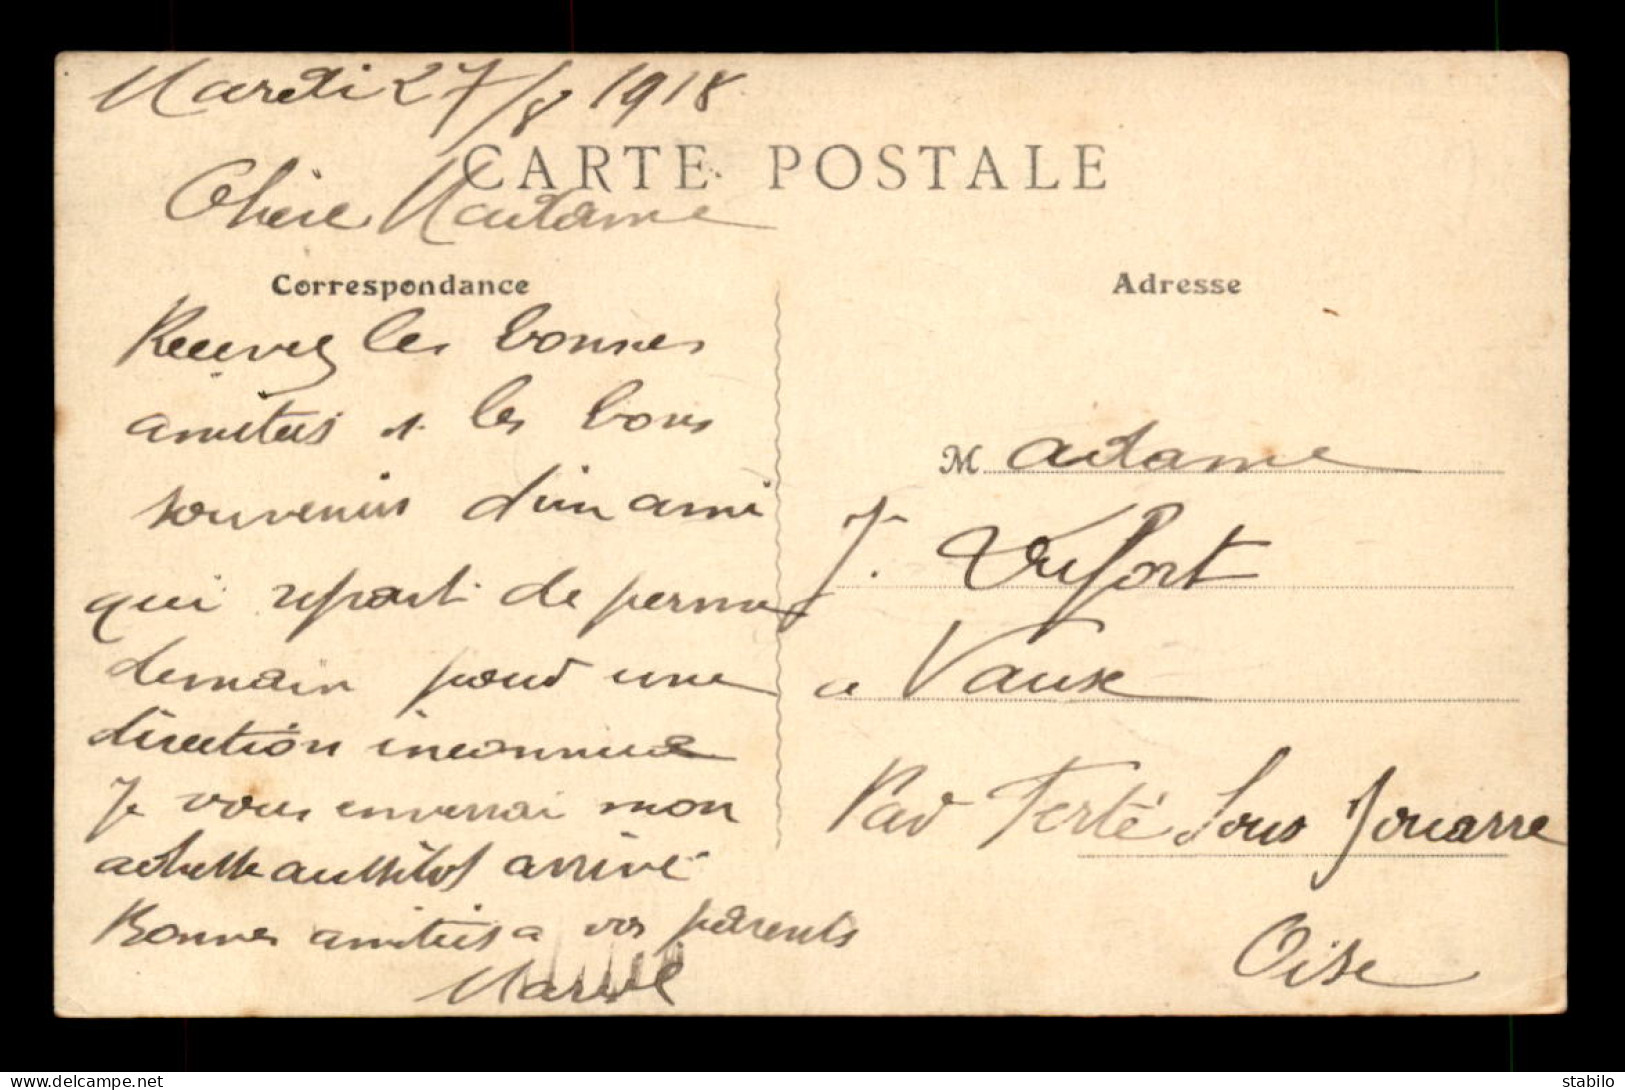 Mardi 27/8 1918
CARTE POSTALE
Chère Madame
Correspondance
Recevez les bonnes
amitiés & les bons
souvenirs d'un ami
qui repart de perme
demain pour une
direction inconnue
Je vous enverrai mon
adresse aussitôt arrivé
Bonnes amitiés a vos parents
Marcel
Adresse
Madame
J. Dufort
a Vaux
Par Ferté Sous Jouarre
Oise
delcampe.net
stabilo